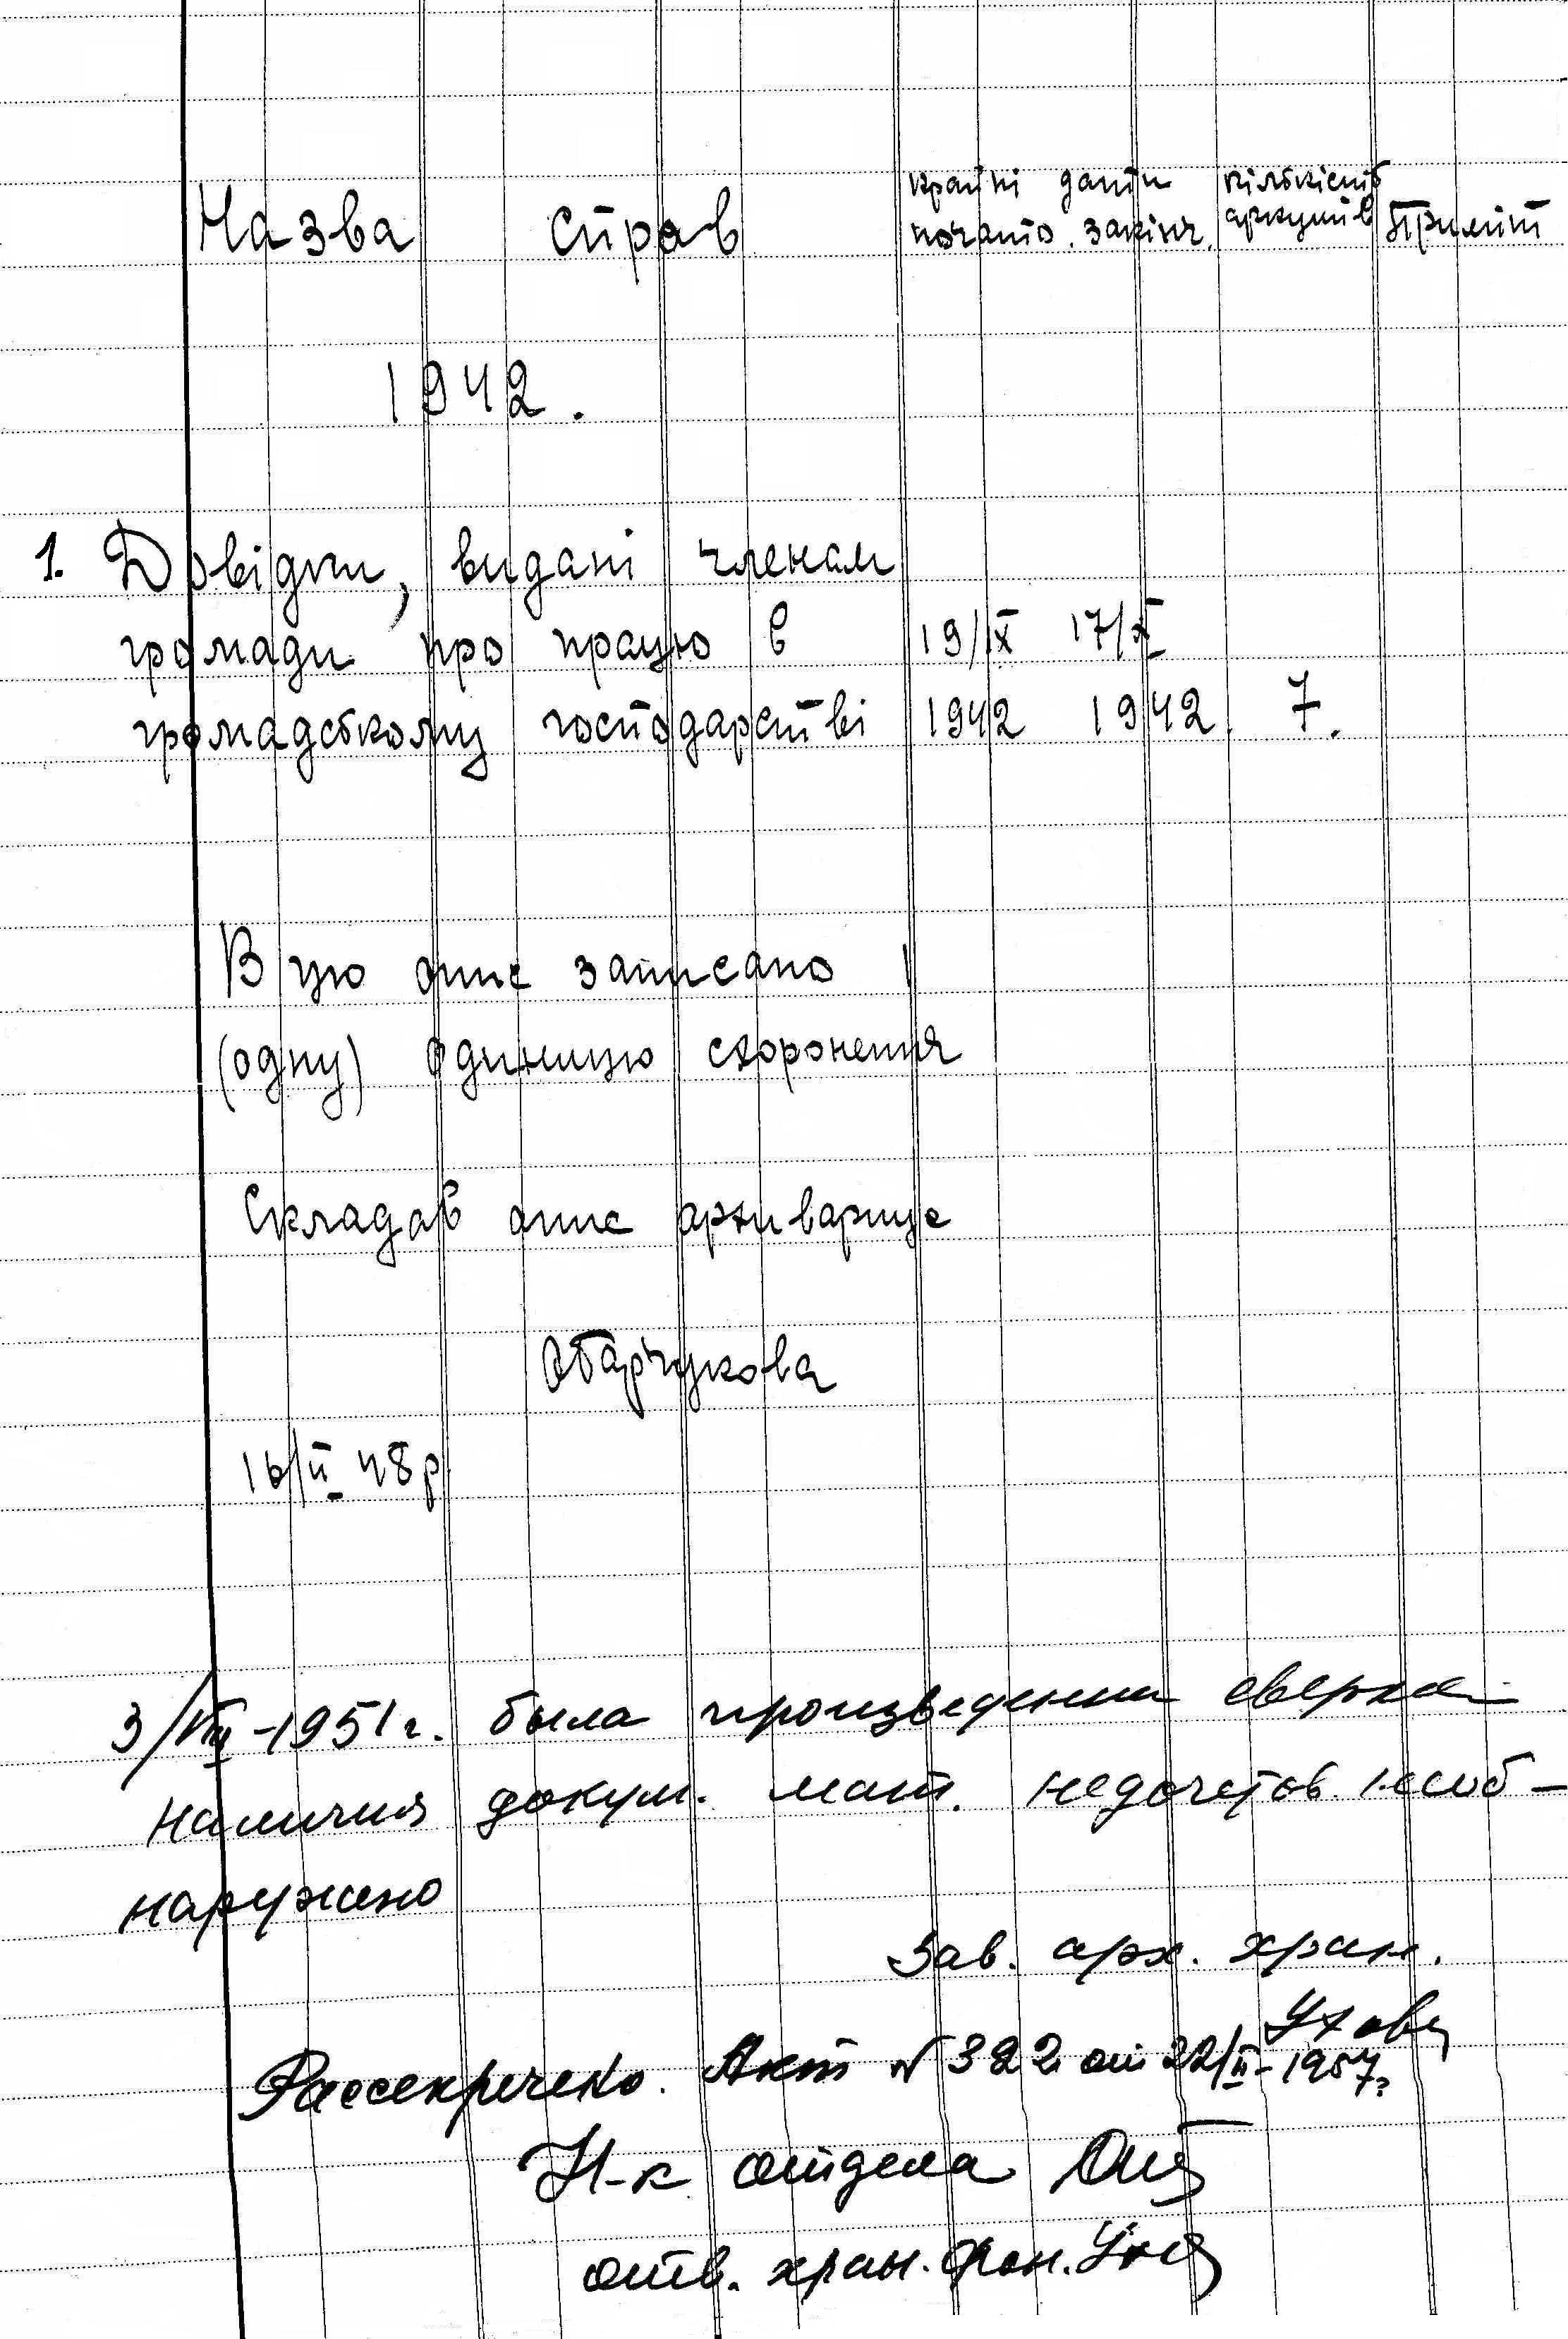 Назва справ крайні дати кількість
почато. закінч. аркушів Приміт
1942.
1. Довідки, видані членам
громади про працю в 19/IX 17/X
громадському господарстві 1942 1942 7.
В цю опис записано 1
(одну) одиницю схоронення
Складав опис архивариус
16/II 48 р
3/VIII-1951 г. была произведена сверка
наличия докум. мат. недочетов необ-
наружено
Зав. арх. хран.
Рассекречено. Акт № 322 от 22/II-1957г.
Н-к отдела
отв. хран. фон.